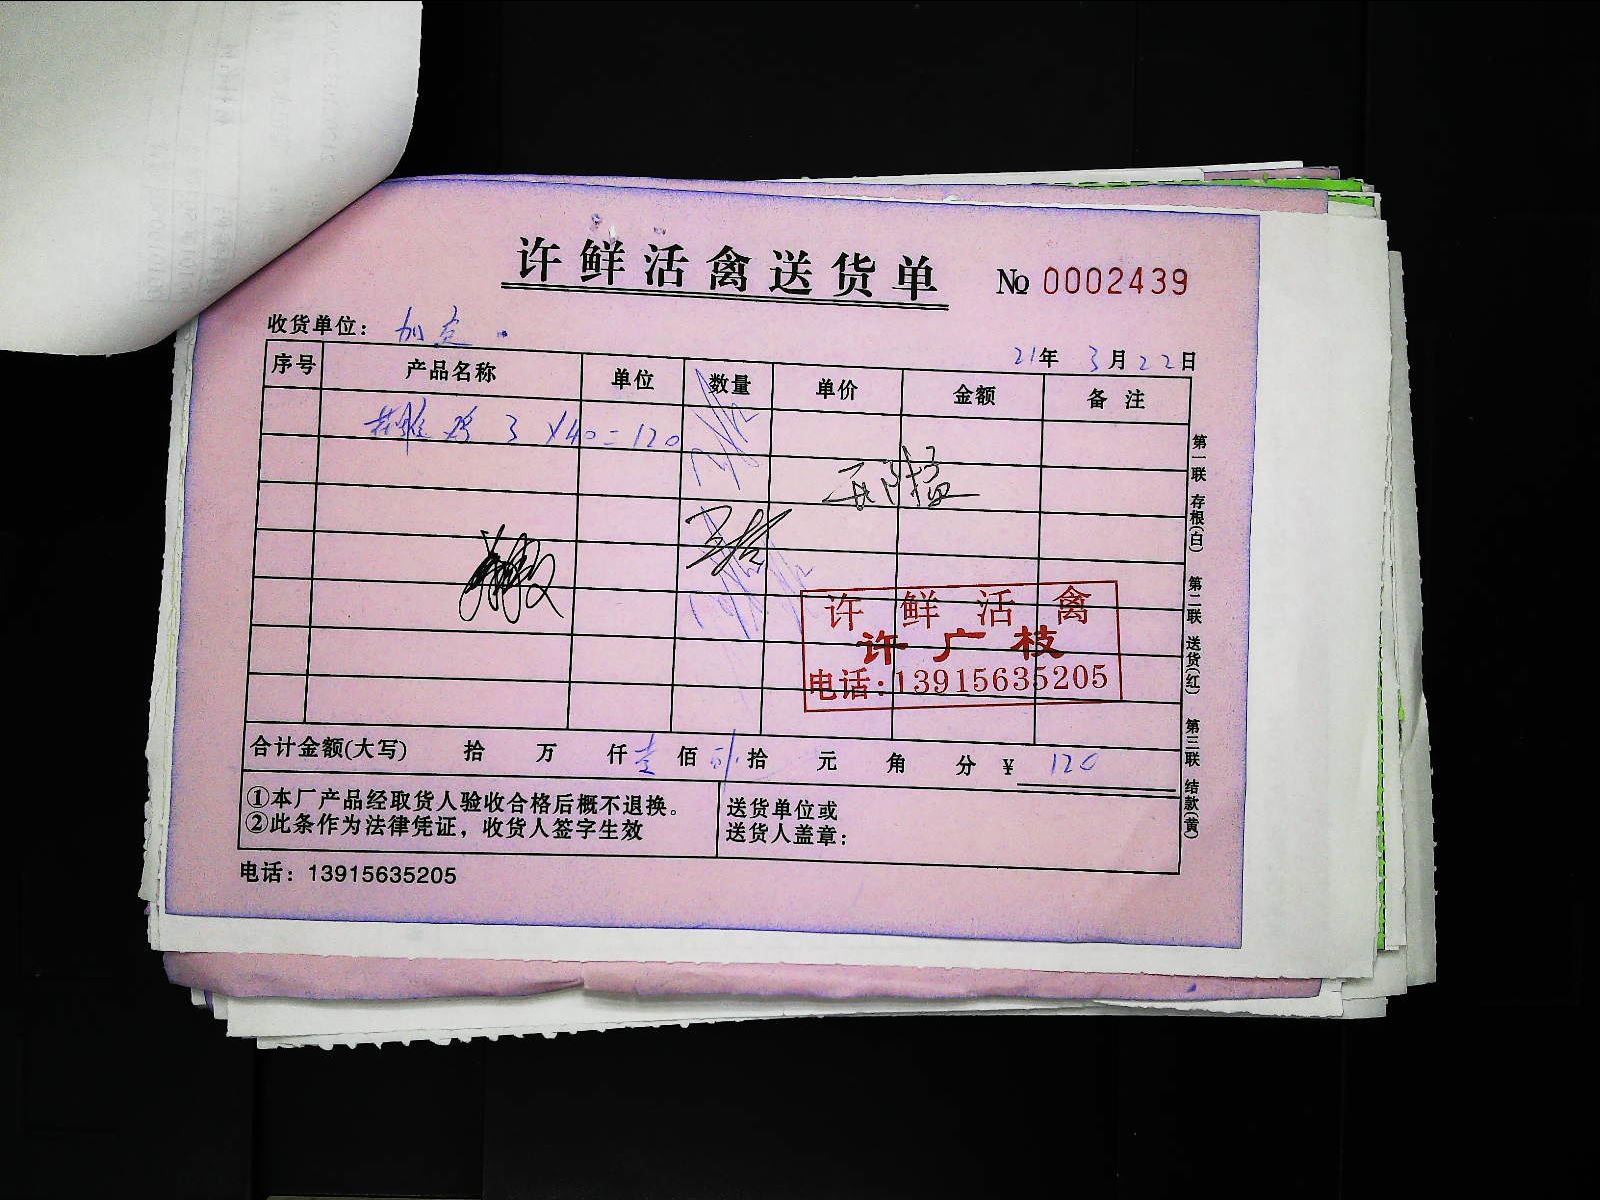 许鲜活禽送货单 № 0002439
收货单位：
21年 3月22日
序号 产品名称 单位 数量 单价 金额 备注
鸡 3 ×40=120
许鲜活禽
许广枝
电话:13915635205
合计金额(大写) 拾 万 仟 壹 佰 贰 拾 元 角 分 ￥ 120
①本厂产品经取货人验收合格后概不退换。
②此条作为法律凭证，收货人签字生效
送货单位或
送货人盖章：
电话：13915635205
第一联 存根(白) 第二联 送货(红) 第三联 结款(黄)